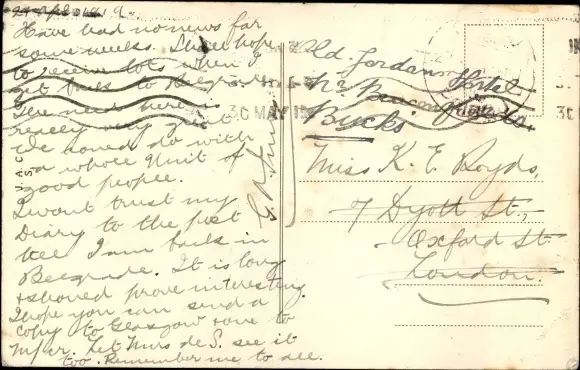 Have had no news for
some weeks. I hope
to receive lots when I
get back to Belgrade.
The need here is
really very great
We could do with
a whole Unit of
good people.
I wont trust my
Diary to the post
till I am back in
Beegrade. It is long
& should prove interesting
I hope you can send a
copy to Glasgow & one to
M/cr. Let Mrs de S. see it
too. Remember me to all.
30 MAY
Old Jordans Hostel
Nr Beaconsfield
Bucks
Miss K. E. Royds,
7 Dyott St.,
Oxford St
London.